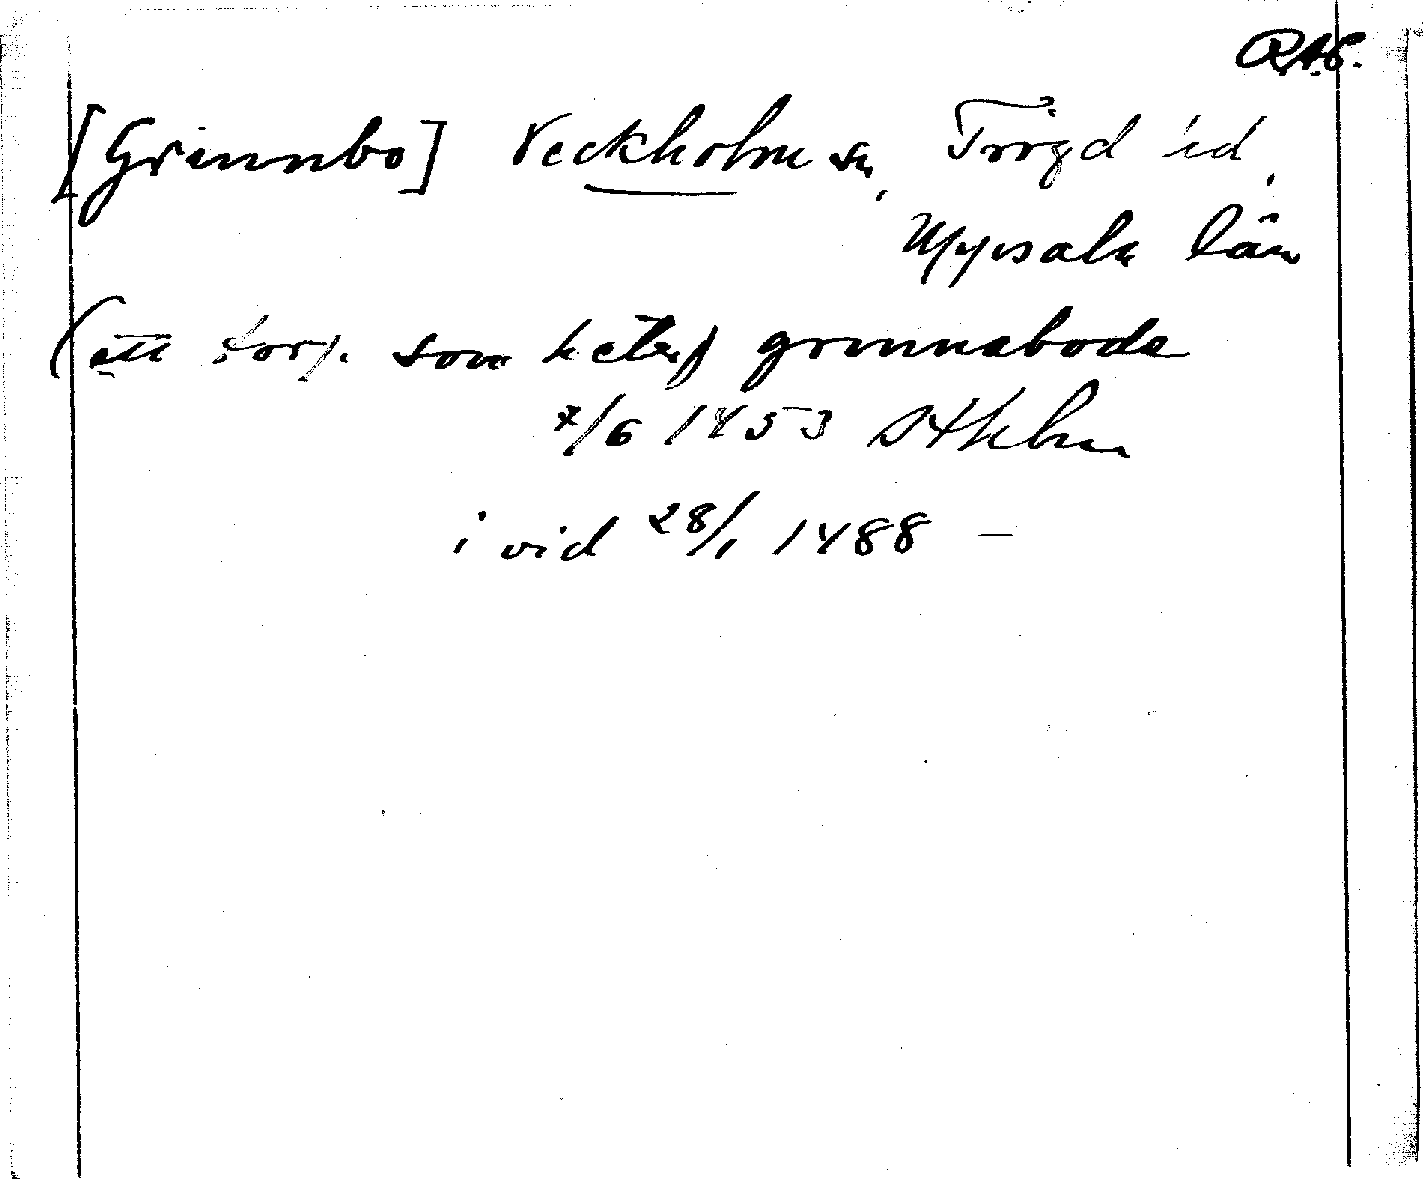 R.A.P.
[Grinnbo] Veckholm sn, Trögd hd,
Uppsala län
(ett torp. som heter grinnaboda
4/6 1453 Sthlm
i vid 28/1 1488 —